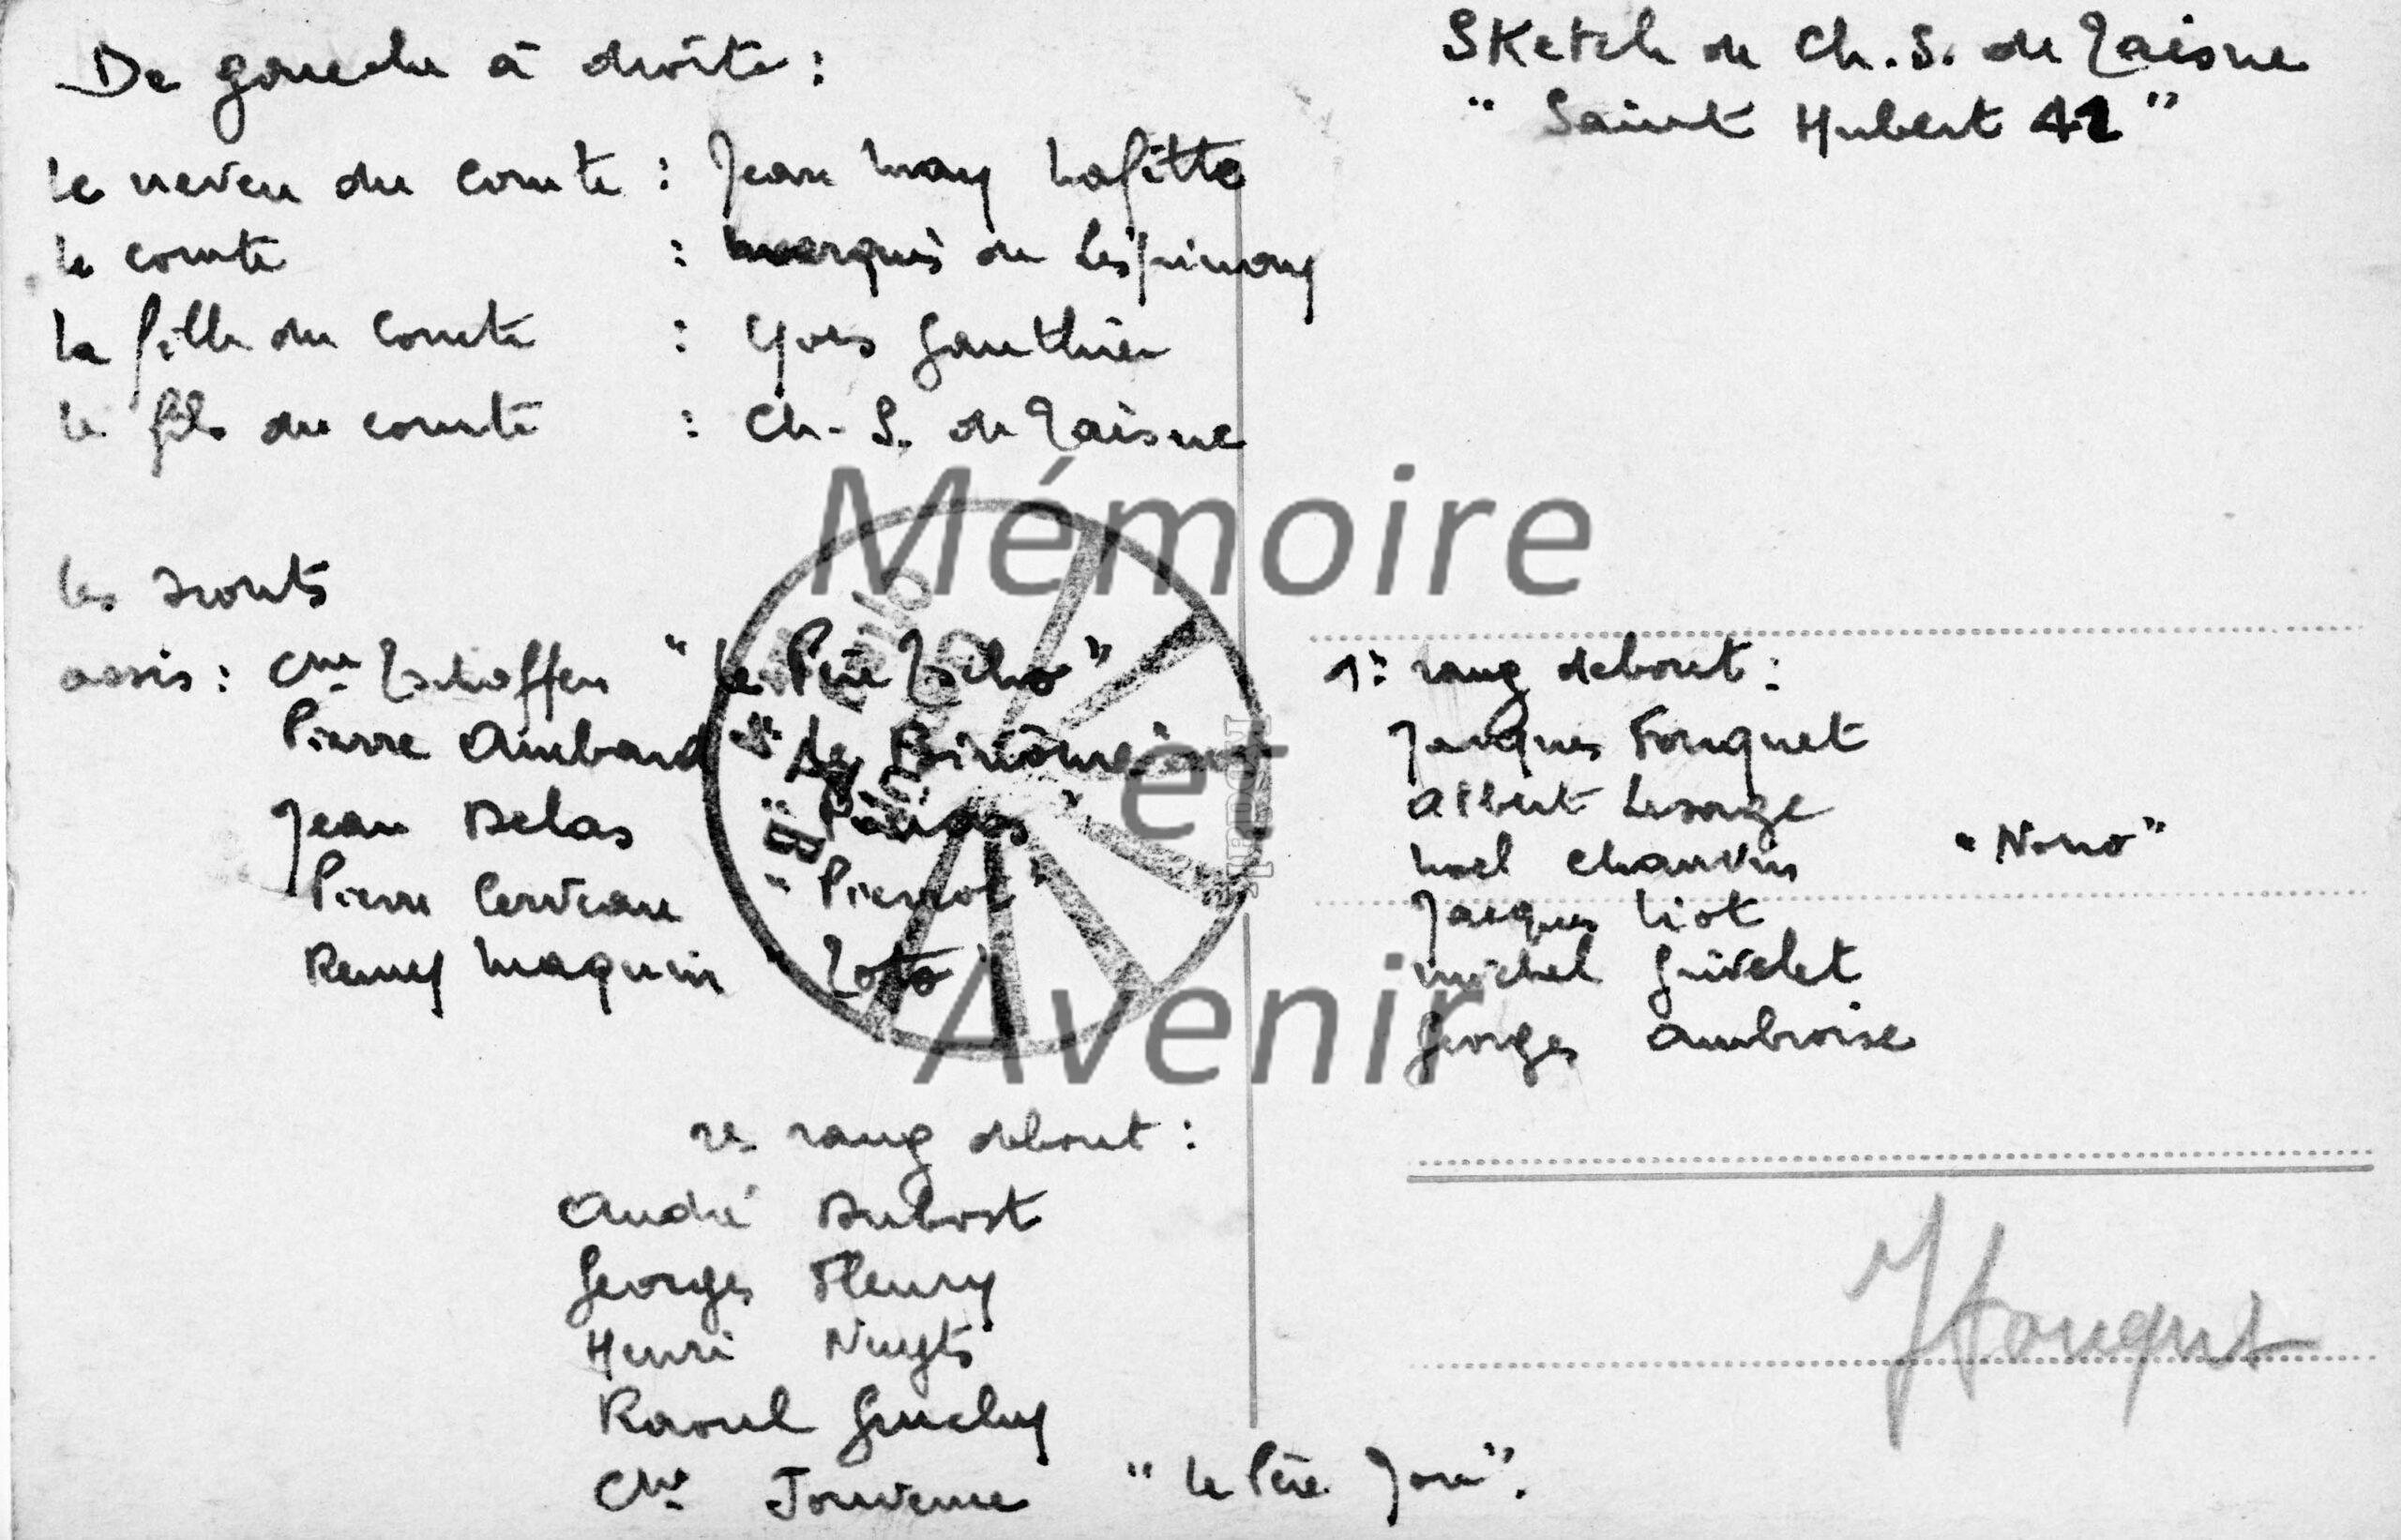 De gauche à droite :
le neveu du comte : Jean May Lafitte
le comte : marquis de Lespinay
la fille du comte : Yves Gauthier
le fils du comte : Ch. S. de Zaisne
Sketch de Ch. S. de Zaisne
" Saint Hubert 42 "
les scouts
assis : Cne Zschoffen " Le Père Zscho "
Pierre Aimbard
Jean Delas
Pierre Cerveau " Pierrot "
Remy Maquin " Zoto "
1er rang debout :
Jacques Fouquet
Albert Lesage
Noel Chauvin " Nono "
Jacques Liot
Michel Grivelet
Georges Ambroise
2e rang debout :
André Dubost
Georges Fleury
Henri Nuyts
Raoul Gruchy
Cne Jouvenne " le Père Jou ".
JFouquet
Mémoire
et
Avenir